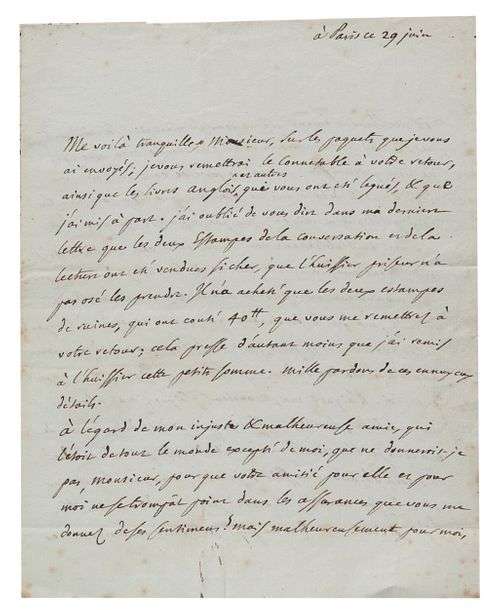 à Paris ce 29 juin
Me voilà tranquille, Monsieur, sur les paquets que je vous
ai envoyés, je vous remettrai le Connetable à votre retour,
et autres
ainsi que les livres anglois, que vous ont été legués, & que
j'ai mis à part. j'ai oublié de vous dire dans ma derniere
lettre que les deux Estampes de la conversation et de la
lecture ont été vendues si cher, que l'huissier priseur n'a
pas osé les prendre. Il n'a acheté que les deux estampes
de ruines, qui ont couté 40tt, que vous me remettrez à
votre retour; cela presse d'autant moins que j'ai remis
à l'huissier cette petite somme. mille pardons de ces ennuyeux
détails.
à légard de mon injuste & malheureuse amie, qui
l'étoit de tout le monde excepté de moi, que ne donnerois-je
pas, monsieur, pour que votre amitié pour elle et pour
moi, ne se trompât point dans les assurances que vous me
donnez de ses sentimens! mais malheureusement pour moi,